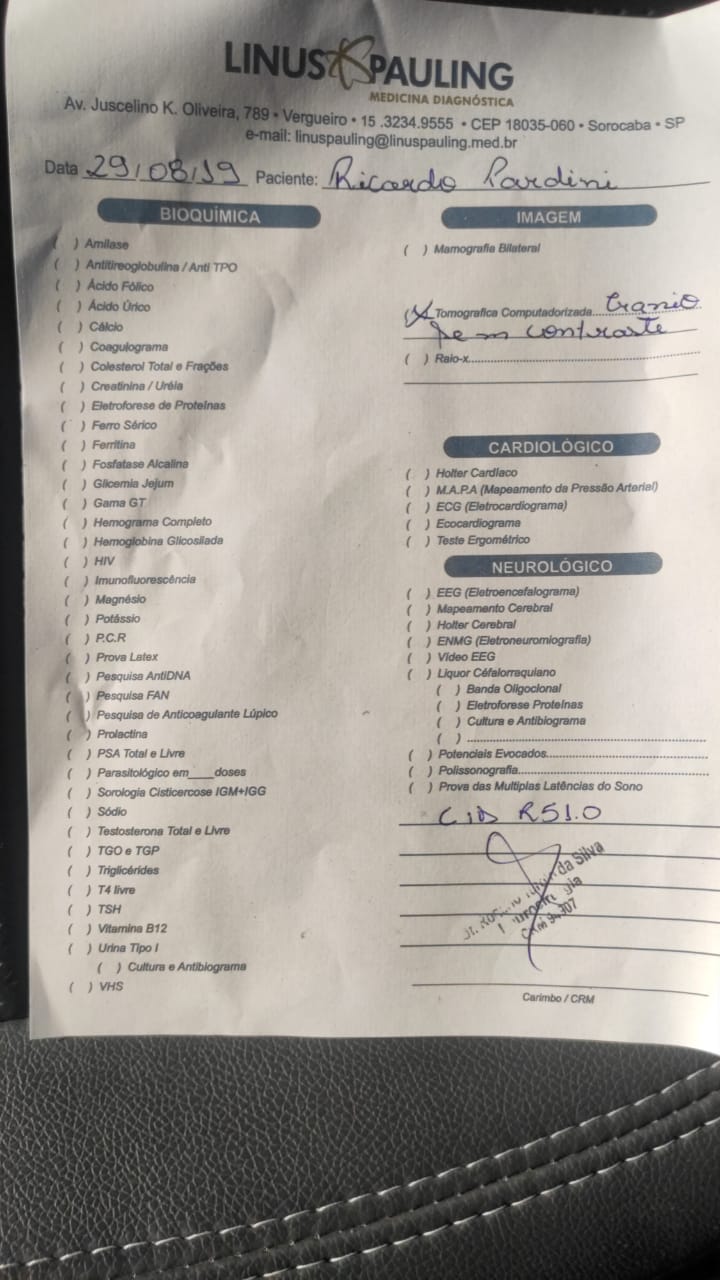 LINUS PAULING
MEDICINA DIAGNÓSTICA
Av. Juscelino K. Oliveira, 789 • Vergueiro • 15 .3234.9555 • CEP 18035-060 • Sorocaba • SP
e-mail: linuspauling@linuspauling.med.br
Data 29/08/19 Paciente: Ricardo Pardini
BIOQUÍMICA
( ) Amilase
( ) Antitireoglobulina / Anti TPO
( ) Ácido Fólico
( ) Ácido Úrico
( ) Cálcio
( ) Coagulograma
( ) Colesterol Total e Frações
( ) Creatinina / Uréia
( ) Eletroforese de Proteínas
( ) Ferro Sérico
( ) Ferritina
( ) Fosfatase Alcalina
( ) Glicemia Jejum
( ) Gama GT
( ) Hemograma Completo
( ) Hemoglobina Glicosilada
( ) HIV
( ) Imunofluorescência
( ) Magnésio
( ) Potássio
( ) P.C.R
( ) Prova Latex
( ) Pesquisa AntiDNA
( ) Pesquisa FAN
( ) Pesquisa de Anticoagulante Lúpico
( ) Prolactina
( ) PSA Total e Livre
( ) Parasitológico em____doses
( ) Sorologia Cisticercose IGM+IGG
( ) Sódio
( ) Testosterona Total e Livre
( ) TGO e TGP
( ) Triglicérides
( ) T4 livre
( ) TSH
( ) Vitamina B12
( ) Urina Tipo I
( ) Cultura e Antibiograma
( ) VHS
IMAGEM
( ) Mamografia Bilateral
(X Tomografica Computadorizada....Cranio
sem contraste
( ) Raio-x
CARDIOLÓGICO
( ) Holter Cardíaco
( ) M.A.P.A (Mapeamento da Pressão Arterial)
( ) ECG (Eletrocardiograma)
( ) Ecocardiograma
( ) Teste Ergométrico
NEUROLÓGICO
( ) EEG (Eletroencefalograma)
( ) Mapeamento Cerebral
( ) Holter Cerebral
( ) ENMG (Eletroneuromiografia)
( ) Vídeo EEG
( ) Liquor Céfalorraquiano
( ) Banda Oligoclonal
( ) Eletroforese Proteínas
( ) Cultura e Antibiograma
( )
( ) Potenciais Evocados
( ) Polissonografia
( ) Prova das Multiplas Latências do Sono
CID R51.0
Dr. da Silva
CRM
Carimbo / CRM